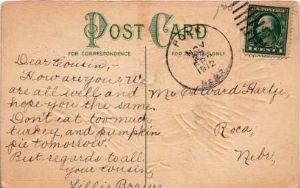 POST CARD
FOR CORRESPONDENCE
FOR ADDRESS ONLY
NOV
1912
NEBR.
Dear Cousin,-
How are you?
are all well and
hope you the same.
Don't eat too much
turkey, and pumpkin
pie tomorrow.
Best regards to all.
your cousin,
Lillie
Mr. Edward
Roca,
Nebr,